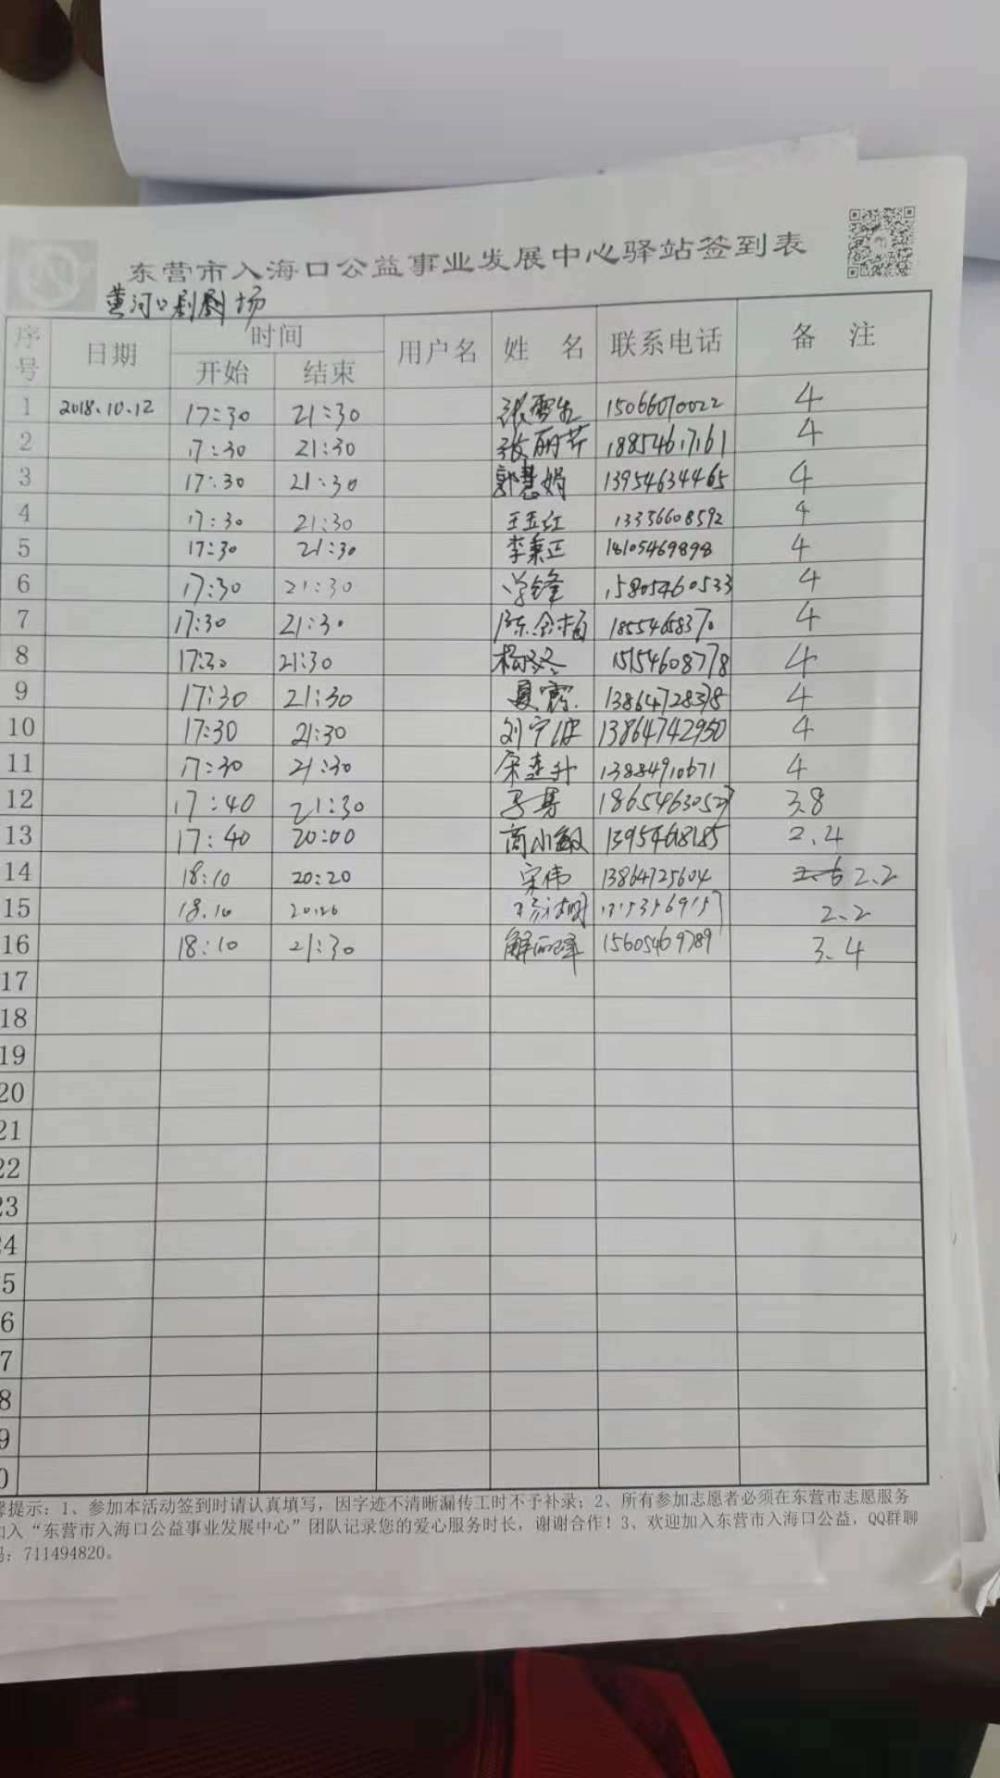 东营市入海口公益事业发展中心驿站签到表
黄河口剧场
序号 日期 时间 用户名 姓 名 联系电话 备 注
开始 结束
1 2018.10.12 17:30 21:30 15066070022 4
2 17:30 21:30 张丽芹 18854617161 4
3 17:30 21:30 郭慧娟 13954634465 4
4 17:30 21:30 王玉红 13356608592 4
5 17:30 21:30 李秉正 18105469898 4
6 17:30 21:30 15805460533 4
7 17:30 21:30 18554658370 4
8 17:30 21:30 杨冬冬 15154608778 4
9 17:30 21:30 夏霞 13864728378 4
10 17:30 21:30 刘宁波 13864742950 4
11 17:30 21:30 宋连升 13884910671 4
12 17:40 21:30 3.8
13 17:40 20:00 商小敏 13954618185 2.4
14 18:10 20:20 宋伟 13864725604 2.2
15 18.10 20:20 2.2
16 18:10 21:30 15605469789 3.4
17
18
19
20
21
22
23
24
5
6
7
8
9
0
提示：1、参加本活动签到时请认真填写，因字迹不清晰漏传工时不予补录；2、所有参加志愿者必须在东营市志愿服务
加入“东营市入海口公益事业发展中心”团队记录您的爱心服务时长，谢谢合作！3、欢迎加入东营市入海口公益，QQ群聊
码：711494820。